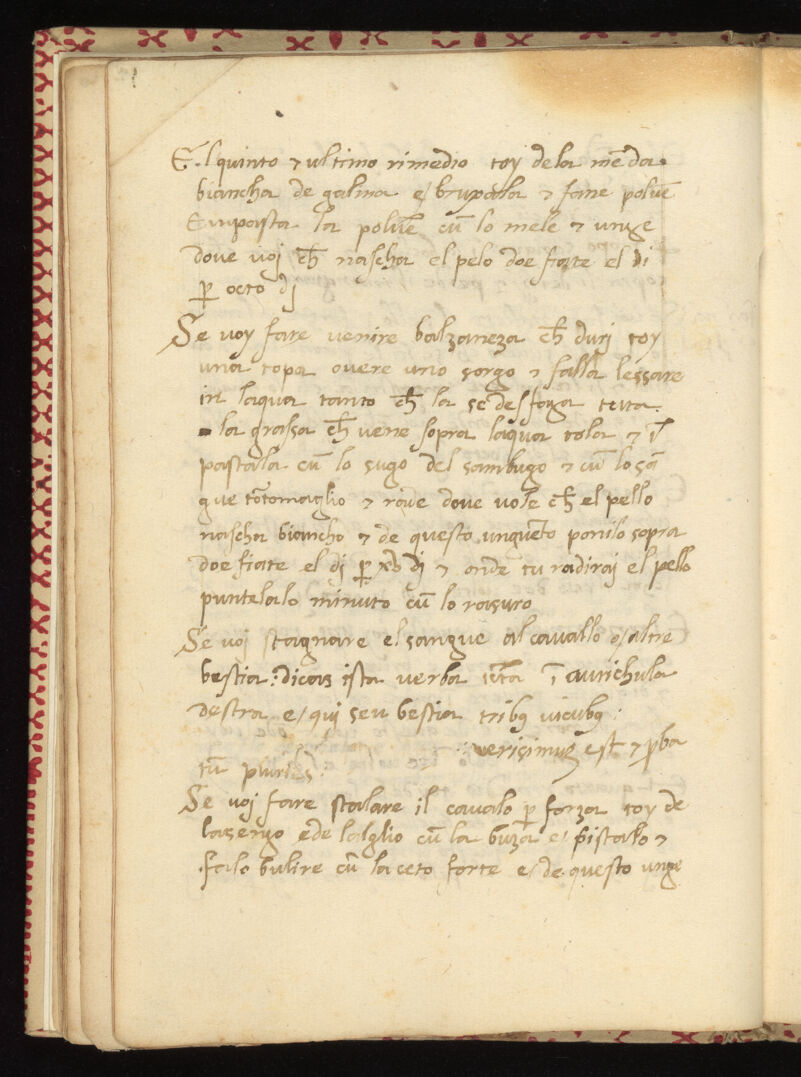 E.l quinto ⁊ ultimo rimedio toy dela mēda.
biancha de galina e/ brupala ⁊ fane polūe
Empasta la polūe cū lo mele ⁊ unge
dove voj ch̄ nascha el pelo doe fiate el di
ꝑ octo dj
Se voy fare venire balzaneza ch̄ durj toy
una topa overe uno sorgo ⁊ falla lessare
in laqua tanto ch̄ la se desfaza tuta.
la grassa ch̄ vene sopra laqua tola ⁊ ī
pastala cū lo sugo del sambugo ⁊ cū lo sā
gue ⁊ rade dove vole ch̄ el pello
nascha biancho ⁊ de questo unguēto ponilo sopra
doe fiate el dj ꝑ xv dj ⁊ onde tu radiraj el pello
puntelalo minuto cū lo rasuro
Se voj stagnare el sangue al cavallo o/ altre
bestia: dicas ista verba ī aurichula
destra e/ qui seu bestia tribꝫ vicibꝫ:
: verisimuꝫ est ⁊ ꝓba
tū pluries:
Se voj fare stalare il cavalo ꝑ forza toy de
lasergo e de lalglio cū la buza e/ pistalo ⁊
falo bulire cū laceto forte e/ de questo unge